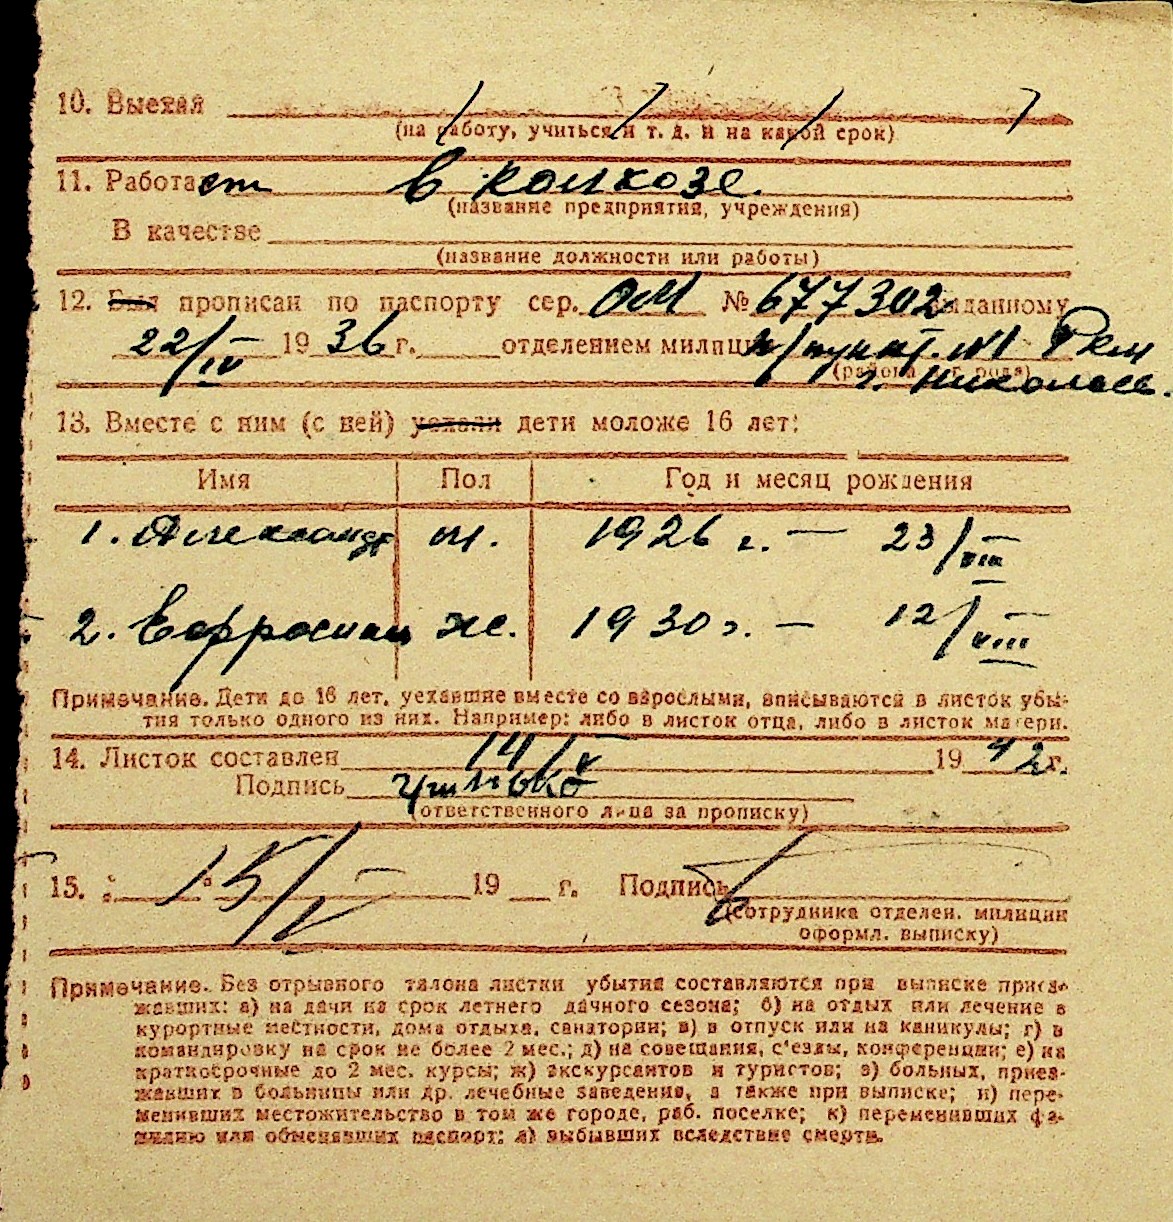 10. Выехал
(на работу, учиться и т. д. и на какой срок)
11. Работает в колхозе.
(название предприятия, учреждения)
В качестве
(название должности или работы)
12. Был прописан по паспорту сер. ОМ № 677302 выданному
22/IV 1936 г. отделением милиции п/пункт. №1 РКМ
(района г. рода)
г. Николаев.
13. Вместе с ним (с ней) уехали дети моложе 16 лет:
Имя Пол Год и месяц рождения
1. Александр м. 1926 г. — 23/VIII
2. Ефросиния ж. 1930 г. — 12/VIII
Примечание. Дети до 16 лет, уехавшие вместе со взрослыми, вписываются в листок убы-
тия только одного из них. Например: либо в листок отца, либо в листок матери.
14. Листок составлен 14/V 1942 г.
Подпись
(ответственного лица за прописку)
15. 15/V 19 г. Подпись
(сотрудника отделен. милиции
оформл. выписку)
Примечание. Без отрывного талона листки убытия составляются при выписке приез-
жавших: а) на дачи на срок летнего дачного сезона; б) на отдых или лечение в
курортные местности, дома отдыха, санатории; в) в отпуск или на каникулы; г) в
командировку на срок не более 2 мес.; д) на совещания, с'езды, конференции; е) на
краткосрочные до 2 мес. курсы; ж) экскурсантов и туристов; з) больных, приез-
жавших в больницы или др. лечебные заведения, а также при выписке; и) пере-
менивших местожительство в том же городе, раб. поселке; к) переменивших фа-
милию или обменявших паспорт; л) выбывших вследствие смерти.